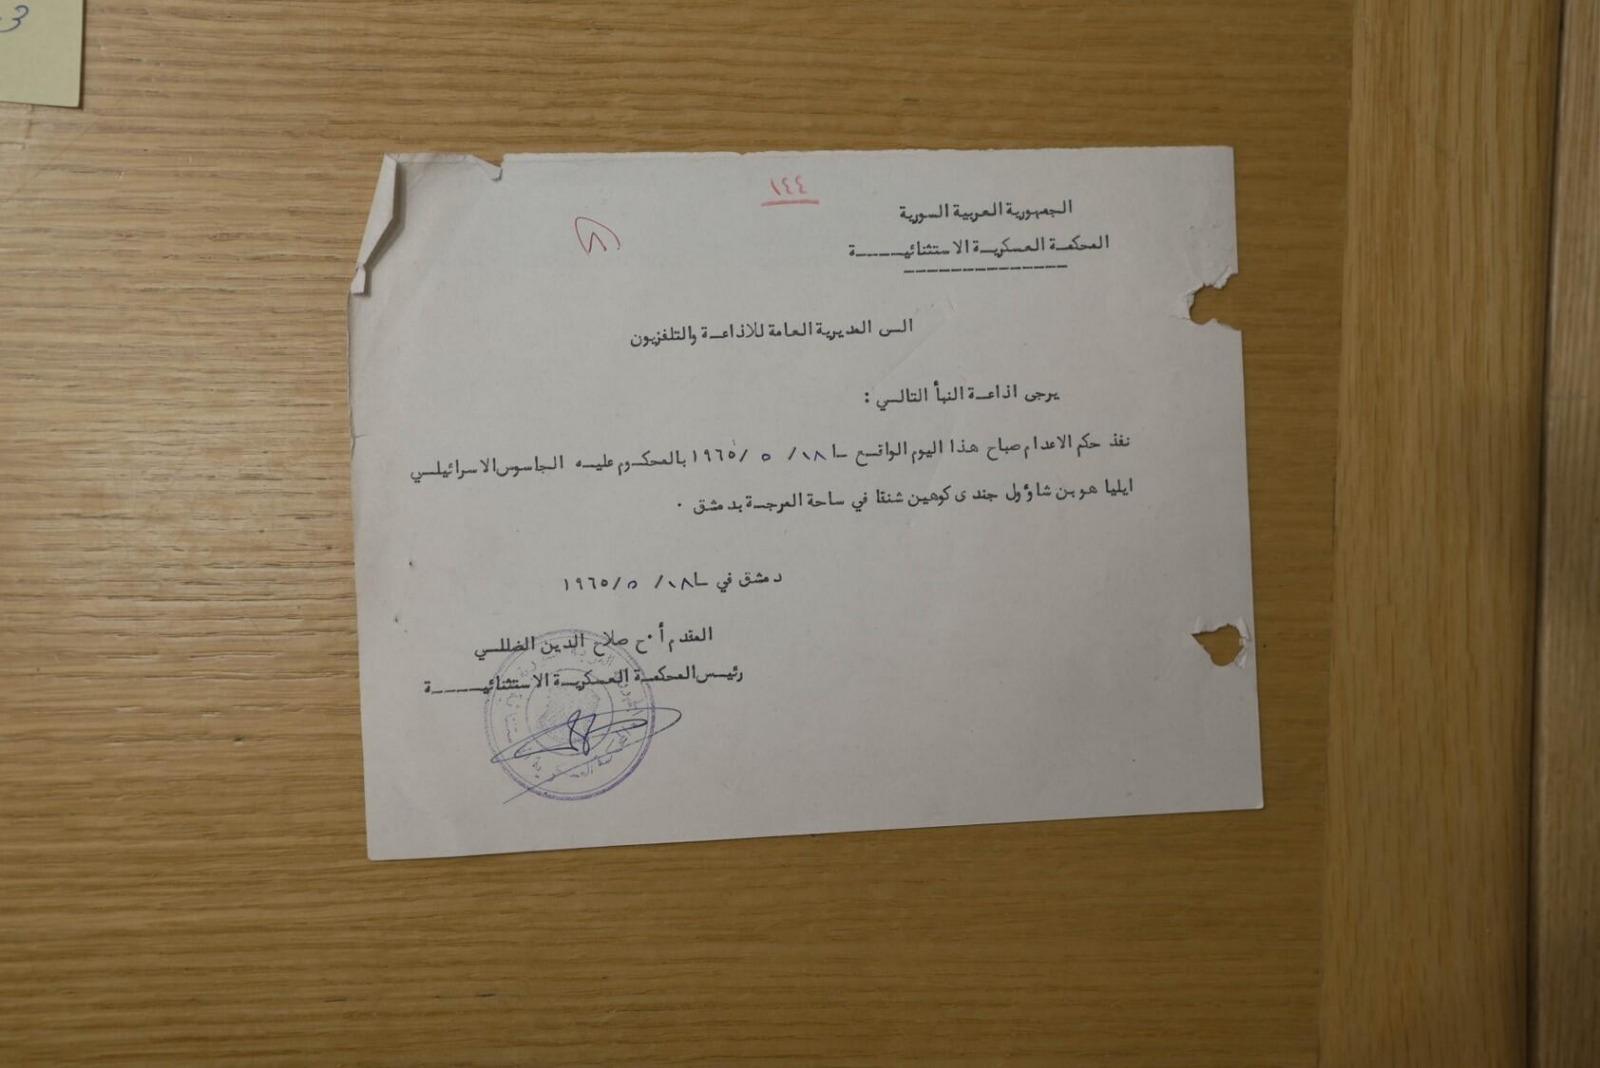 3
١٤٤
الجمهورية العربية السورية
المحكمة العسكرية الاستثنائيــــــة
الى المديرية العامة للاذاعـة والتلفزيون
يرجى اذاعـة النبأ التالـي :
نفذ حكم الاعدام صباح هذا اليوم الواقـع ١٨/ ٥ /١٩٦٥ بالمحكـوم عليـه الجاسوس الاسرائيلـي
ايليا هو بن شاؤول جندى كوهين شنقا في ساحة المرجـة بدمشق ٠
دمشق في ١٨/ ٥ /١٩٦٥
المقدم أ٠ح صلاح الدين الضللـي
رئيـس المحكمـة العـسكريـة الاستثنائيـــــة